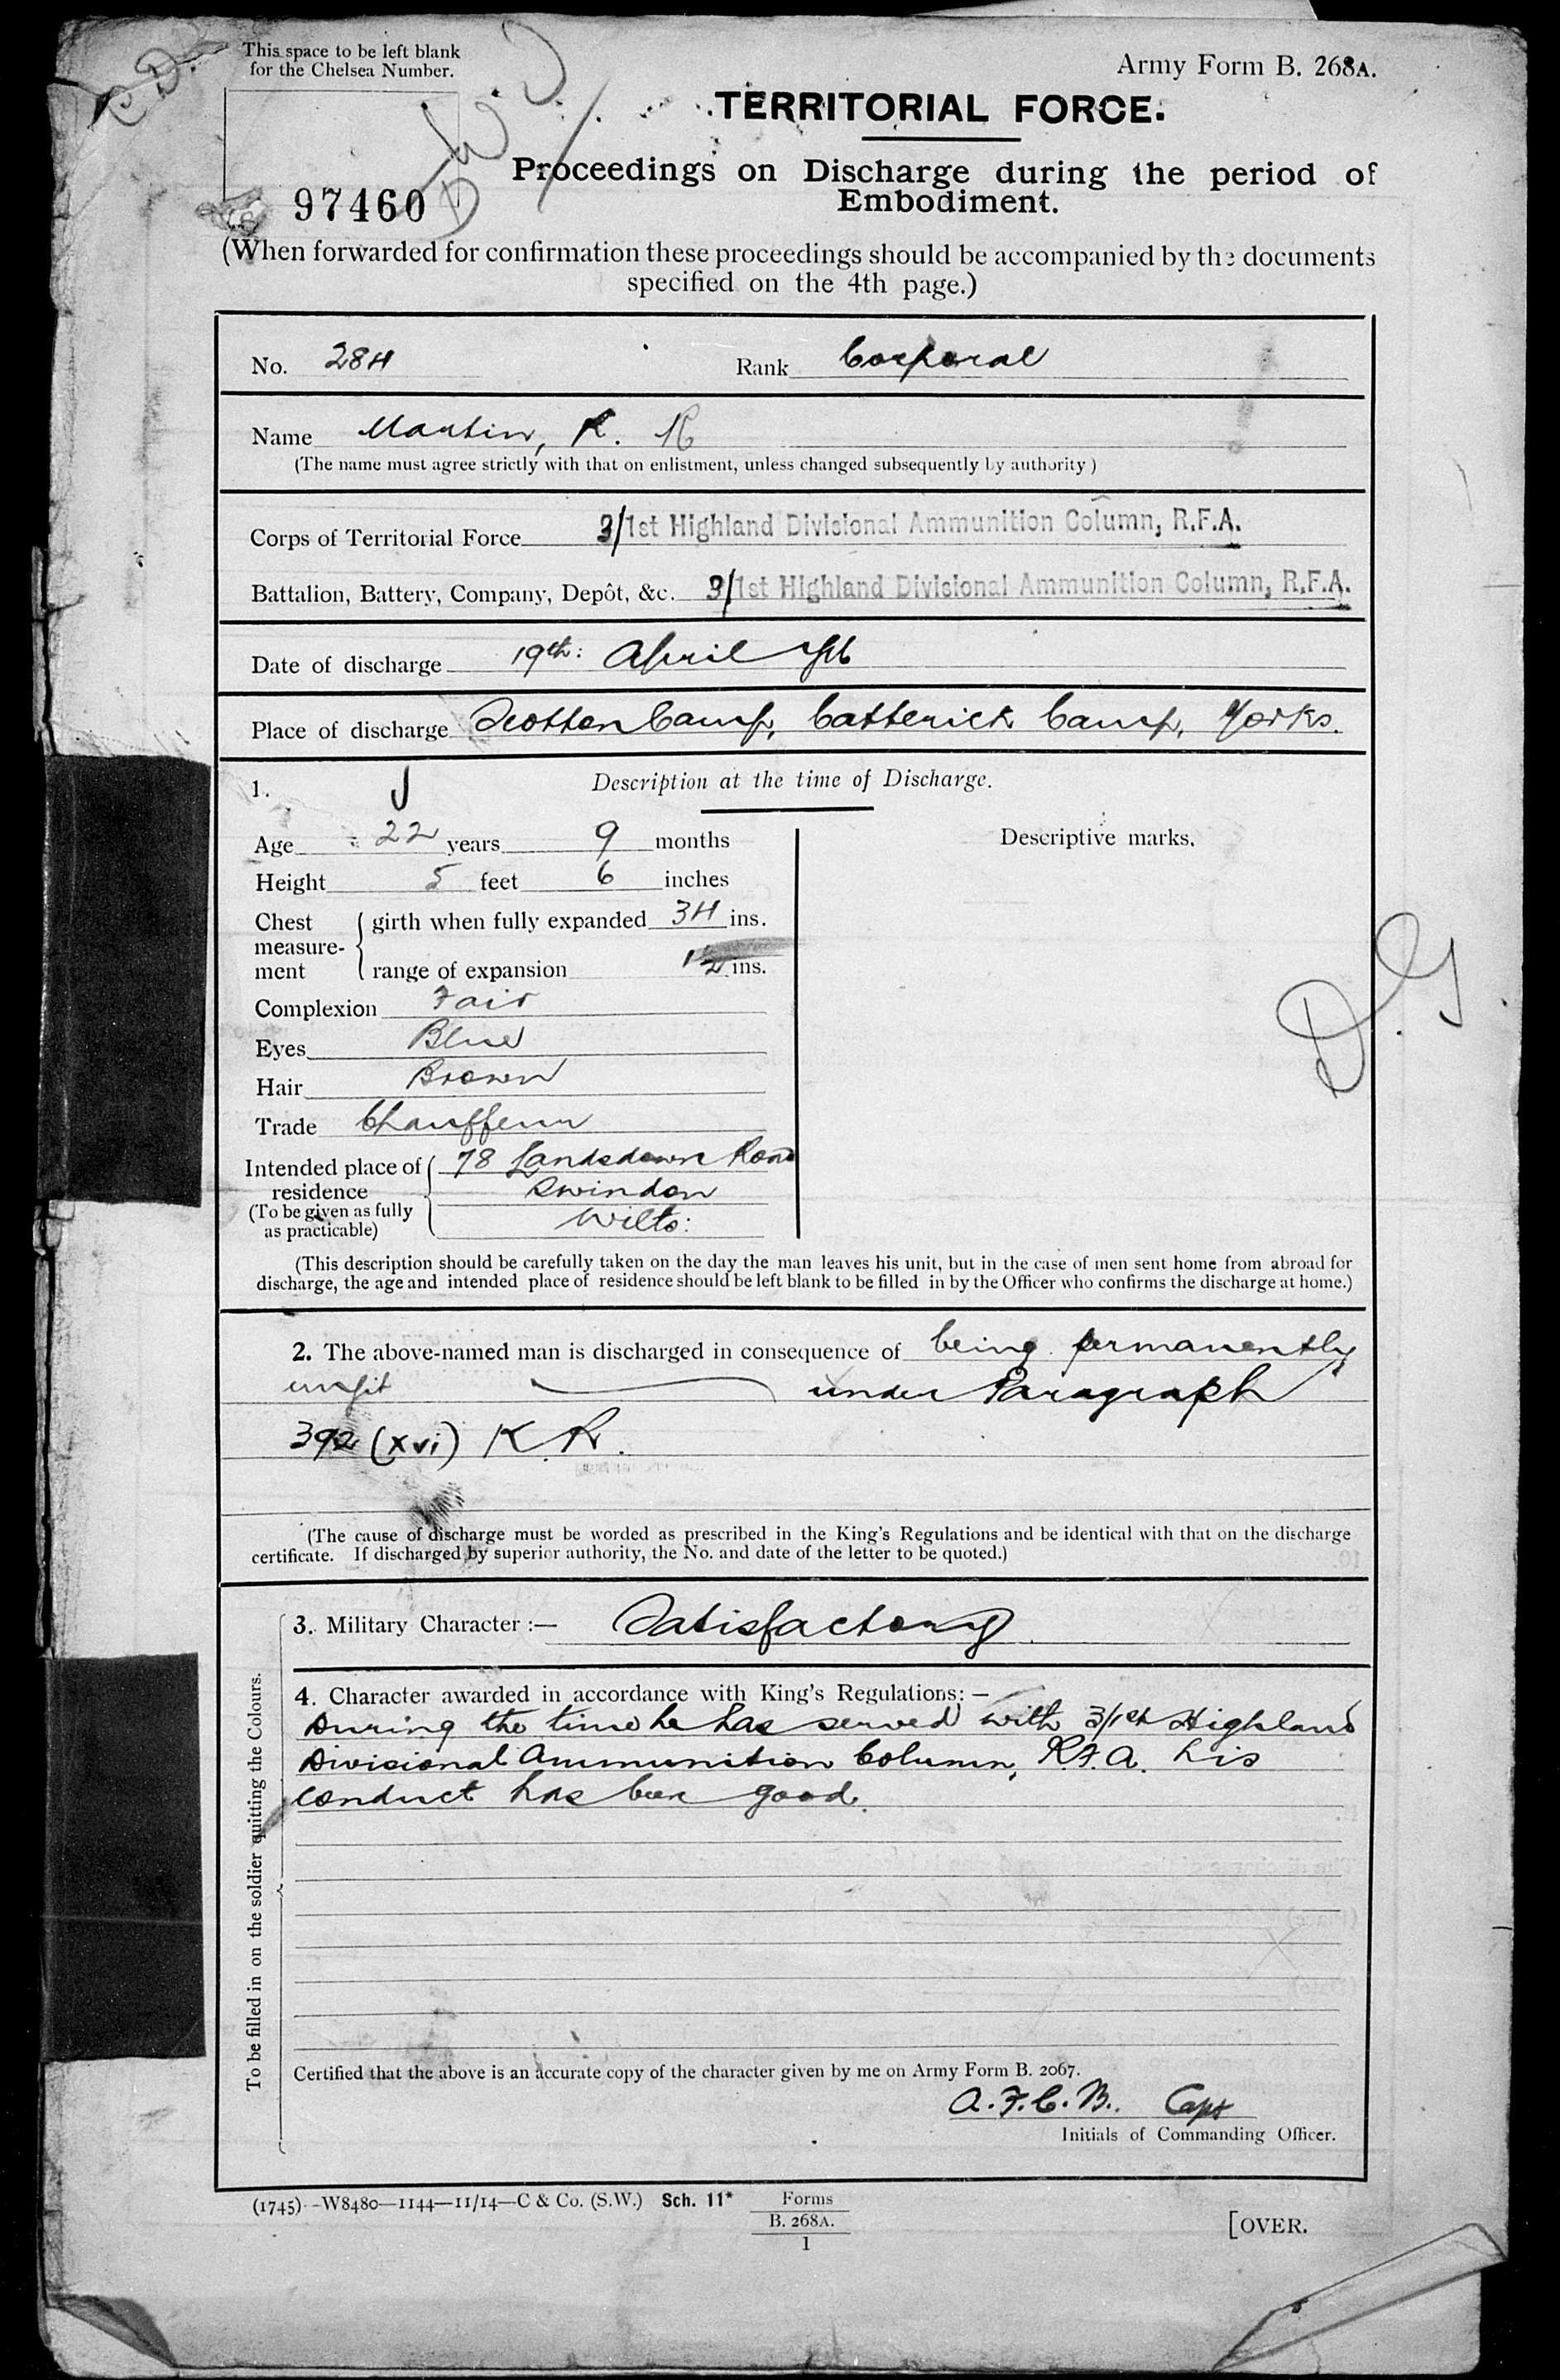 This space to be left blank
for the Chelsea Number.
Army Form B. 268A.
C D.
D. W. D
97460
TERRITORIAL FORCE.
Proceedings on Discharge during the period of
Embodiment.
(When forwarded for confirmation these proceedings should be accompanied by the documents
specified on the 4th page.)
No. 284 Rank Corporal
Name Martin, R. R
(The name must agree strictly with that on enlistment, unless changed subsequently by authority)
Corps of Territorial Force 3/1st Highland Divisional Ammunition Column, R.F.A.
Battalion, Battery, Company, Depôt, &c. 3/1st Highland Divisional Ammunition Column, R.F.A.
Date of discharge 19th: April 1916
Place of discharge Scotton Camp, Catterick Camp, Yorks.
1. Description at the time of Discharge.
Age 22 years 9 months
Height 5 feet 6 inches
Chest measurement { girth when fully expanded 34 ins.
range of expansion 1½ ins.
Complexion Fair
Eyes Blue
Hair Brown
Trade Chauffeur
Intended place of residence (To be given as fully as practicable) { 78 Landsdown Road
Swindon
Wilts:
Descriptive marks.
D. G.
(This description should be carefully taken on the day the man leaves his unit, but in the case of men sent home from abroad for
discharge, the age and intended place of residence should be left blank to be filled in by the Officer who confirms the discharge at home.)
2. The above-named man is discharged in consequence of being permanently
unfit under Paragraph
392 (xvi) K.R.
(The cause of discharge must be worded as prescribed in the King's Regulations and be identical with that on the discharge
certificate. If discharged by superior authority, the No. and date of the letter to be quoted.)
To be filled in on the soldier quitting the Colours.
3. Military Character :— Satisfactory
4. Character awarded in accordance with King's Regulations: —
During the time he has served with 3/1st Highland
Divisional Ammunition Column, R.F.A. his
conduct has been good.
Certified that the above is an accurate copy of the character given by me on Army Form B. 2067.
A.F.C.B. Capt
Initials of Commanding Officer.
(1745) -W8480—1144—11/14—C & Co. (S.W.) Sch. 11*
Forms
B. 268A.
1
[OVER.